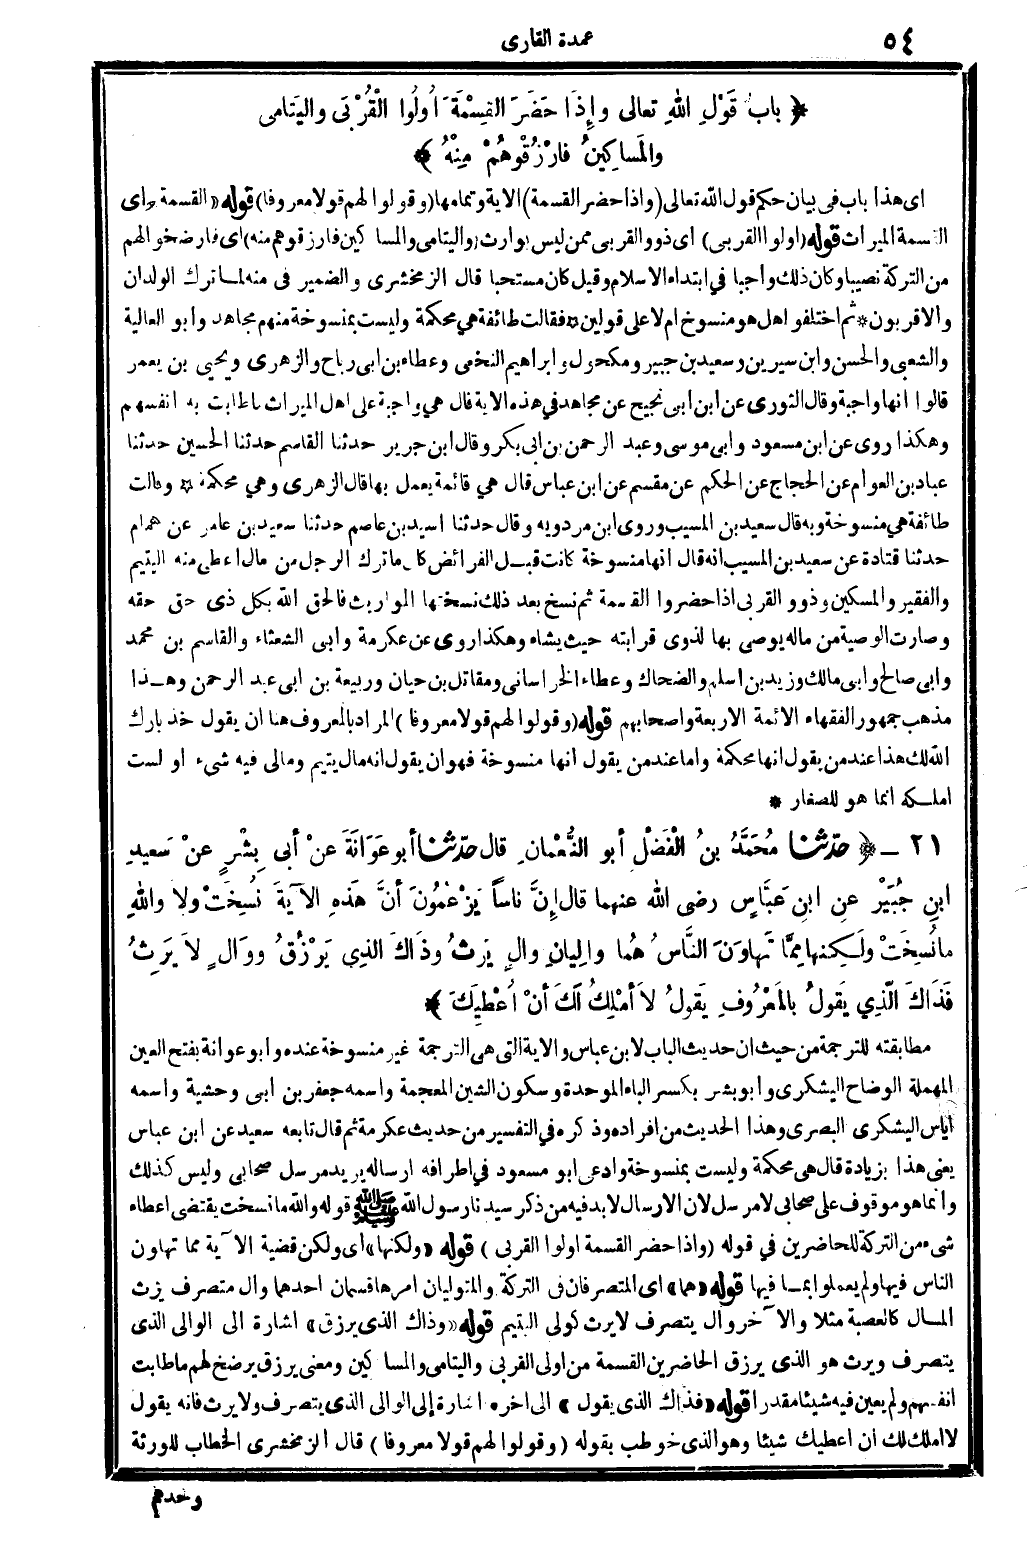 ٥٤
عمدة القارى
﴿ بابُ قَوْلِ اللهِ تعالى وإِذَا حَضَرَ القِسْمَةَ أُولُوا الْقُرْبَى واليَتامى
والمَساكِينُ فارْزُقُوهُمْ مِنْهُ ﴾
اى هذا باب فى بيان حكم قول الله تعالى (واذا حضر القسمة) الاية وتمامها (وقولوا لهم قولا معروفا) قوله «القسمة» اى
القسمة الميراث قوله (اولوا القربى) اى ذوو القربى ممن ليس بوارث (واليتامى والمساكين فارزقوهم منه) اى فارضخوا لهم
من التركة نصيبا وكان ذلك واجبا في ابتداء الاسلام وقيل كان مستحبا قال الزمخشرى والضمير فى منه لما ترك الولدان
والاقربون * ثم اختلفوا هل هو منسوخ ام لا على قولين * فقالت طائفة هي محكمة وليست بمنسوخة منهم مجاهد وأبو العالية
والشعبى والحسن وابن سيرين وسعيد بن جبير ومكحول وابراهيم النخعى وعطاء بن ابى رباح والزهرى ويحيى بن يعمر
قالوا انها واجبة وقال الثورى عن ابن ابى نجيح عن مجاهد في هذه الاية قال هي واجبة على اهل الميراث ما طابت به انفسهم
وهكذا روى عن ابن مسعود وابى موسى وعبد الرحمن بن ابى بكر وقال ابن جرير حدثنا القاسم حدثنا الحسين حدثنا
عباد بن العوام عن الحجاج عن الحكم عن مقسم عن ابن عباس قال هي قائمة يعمل بها قال الزهرى وهي محكمة * وقالت
طائفة هي منسوخة وبه قال سعيد بن المسيب وروى ابن مردويه وقال حدثنا اسيد بن عاصم حدثنا سعيد بن عامر عن همام
حدثنا قتادة عن سعيد بن المسيب انه قال انها منسوخة كانت قبل الفرائض كل ما ترك الرجل من مال اعطى منه اليتيم
والفقير والمسكين وذوو القربى اذا حضروا القسمة ثم نسخ بعد ذلك نسختها المواريث فالحق الله بكل ذى حق حقه
وصارت الوصية من ماله يوصى بها لذوى قرابته حيث يشاء وهكذا روى عن عكرمة وابى الشعثاء والقاسم بن محمد
وابى صالح وابى مالك وزيد بن اسلم والضحاك وعطاء الخراسانى ومقاتل بن حيان وربيعة بن ابى عبد الرحمن وهذا
مذهب جمهور الفقهاء الائمة الاربعة واصحابهم قوله (وقولوا لهم قولا معروفا) المراد بالمعروف هنا ان يقول خذ بارك
الله لك هذا عند من يقول انها محكمة واما عند من يقول انها منسوخة فهو ان يقول انه مال يتيم ومالى فيه شىء او لست
املكه انما هو للصغار *
٢١ ـ ﴿ حدّثنا مُحَمَّدُ بنُ الْفَضْلِ أبو النُّعْمانِ قال حدّثنا أبو عَوَانَةَ عنْ أبى بِشْرٍ عنْ سَعيدِ
ابنِ جُبَيْرٍ عنِ ابنِ عَبَّاسٍ رضى الله عنهما قال إنَّ ناساً يَزْعُمُونَ أنَّ هَذِهِ الآيةَ نُسِخَتْ ولا واللهِ
ما نُسِخَتْ ولَكِنها مِمَّا تَهاوَنَ النَّاسُ هُما والِيانِ والٍ يَرِثُ وذَاكَ الذي يَرْزُقُ ووَالٍ لاَ يَرِثُ
فَذَاكَ الّذِي يَقولُ بالمَعْرُوفِ يَقولُ لاَ أمْلِكُ لَكَ أنْ أُعْطِيَكَ ﴾
مطابقته للترجمة من حيث ان حديث الباب لابن عباس والاية التى هى الترجمة غير منسوخة عنده وابو عوانة بفتح العين
المهملة الوضاح اليشكرى وأبو بشر بكسر الباء الموحدة وسكون الشين المعجمة واسمه جعفر بن ابى وحشية واسمه
أياس اليشكرى البصرى وهذا الحديث من افراده وذكره في التفسير من حديث عكرمة ثم قال تابعه سعيد عن ابن عباس
يعنى هذا بزيادة قال هى محكمة وليست بمنسوخة وادعى ابو مسعود في اطرافه ارساله يريد مرسل صحابى وليس كذلك
وانما هو موقوف على صحابى لا مرسل لان الارسال لا بد فيه من ذكر سيدنا رسول الله ﷺ قوله والله ما نسخت يقتضى اعطاء
شىء من التركة للحاضرين في قوله (واذا حضر القسمة اولوا القربى) قوله «ولكنها» اى ولكن قضية الآية مما تهاون
الناس فيها ولم يعملوا بما فيها قوله «هما» اى المتصرفان فى التركة والمتوليان امرها قسمان احدهما وال متصرف يرث
المال كالعصبة مثلا والآخر وال يتصرف لا يرث كولى اليتيم قوله «وذاك الذى يرزق» اشارة الى الوالى الذى
يتصرف ويرث هو الذى يرزق الحاضرين القسمة من اولى القربى واليتامى والمساكين ومعنى يرزق يرضخ لهم ما طابت
انفسهم ولم يعين فيه شيئا مقدرا قوله «فذاك الذى يقول» الى اخره اشارة إلى الوالى الذى يتصرف ولا يرث فانه يقول
لا املك لك ان اعطيك شيئا وهو الذى خوطب بقوله (وقولوا لهم قولا معروفا) قال الزمخشرى الخطاب للورثة
وحدهم